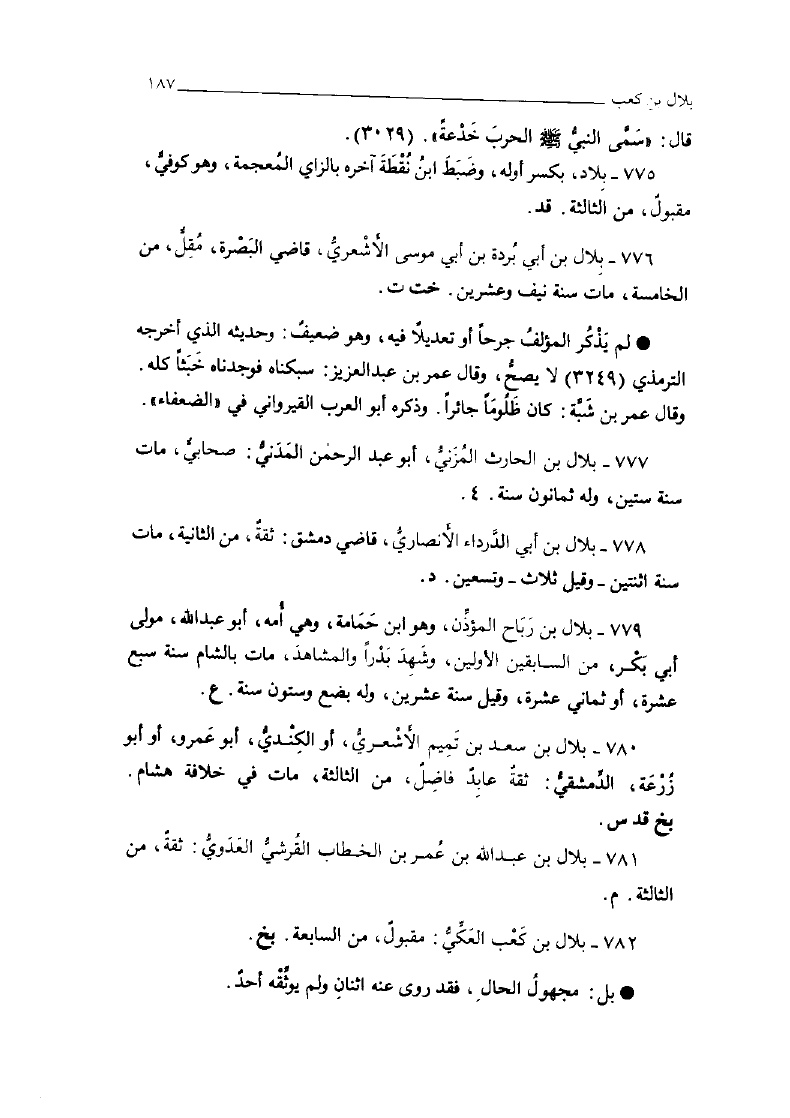 بلال بن كعب ١٨٧
قال: «سَمَّى النبيُّ ﷺ الحربَ خَدْعةً». (٣٠٢٩).
٧٧٥ ـ بلاد، بكسر أوله، وضَبَطَ ابنُ نُقْطَةَ آخره بالزاي المُعجمة، وهو كوفيٌّ،
مقبولٌ، من الثالثة. قد.
٧٧٦ ـ بِلال بن أبي بُردة بن أبي موسى الأشْعريُّ، قاضي البَصْرة، مُقِلٌّ، من
الخامسة، مات سنة نيف وعشرين. خت ت.
● لم يَذْكُر المؤلفُ جرحاً أو تعديلاً فيه، وهو ضعيفٌ: وحديثه الذي أخرجه
الترمذي (٣٢٤٩) لا يصحُّ، وقال عمر بن عبدالعزيز: سبكناه فوجدناه خَبَثاً كله.
وقال عمر بن شَبَّة: كان ظَلُومَاً جائراً. وذكره أبو العرب القيرواني في «الضعفاء».
٧٧٧ ـ بلال بن الحارث المُزَنيُّ، أبو عبد الرحمٰن المَدَنيُّ: صحابيٌّ، مات
سنة ستين، وله ثمانون سنة. ٤.
٧٧٨ ـ بلال بن أبي الدَّرداء الأنصاريُّ، قاضي دمشق: ثقةٌ، من الثانية، مات
سنة اثنتين ـ وقيل ثلاث ـ وتسعين. د.
٧٧٩ ـ بلال بن رَبَاح المؤذِّن، وهو ابن حَمَامة، وهي أُمه، أبو عبدالله، مولى
أبي بَكْر، من السابقين الأولين، وشَهِدَ بَدْراً والمشاهدَ، مات بالشام سنة سبع
عشرة، أو ثماني عشرة، وقيل سنة عشرين، وله بضع وستون سنة. ع.
٧٨٠ ـ بلال بن سعد بن تَمِيم الأشْعريُّ، أو الكِنْديُّ، أبو عَمرو، أو أبو
زُرْعَة، الدِّمشقيُّ: ثقةٌ عابدٌ فاضِلٌ، من الثالثة، مات في خلافة هشام.
بخ قد س.
٧٨١ ـ بلال بن عبدالله بن عُمر بن الخطاب القُرشيُّ العَدَويُّ: ثقةٌ، من
الثالثة. م.
٧٨٢ ـ بلال بن كَعْب العَكِّيُّ: مقبولٌ، من السابعة. بخ.
● بل: مجهولُ الحالِ، فقد روى عنه اثنانِ ولم يوثِّقْه أحدٌ.